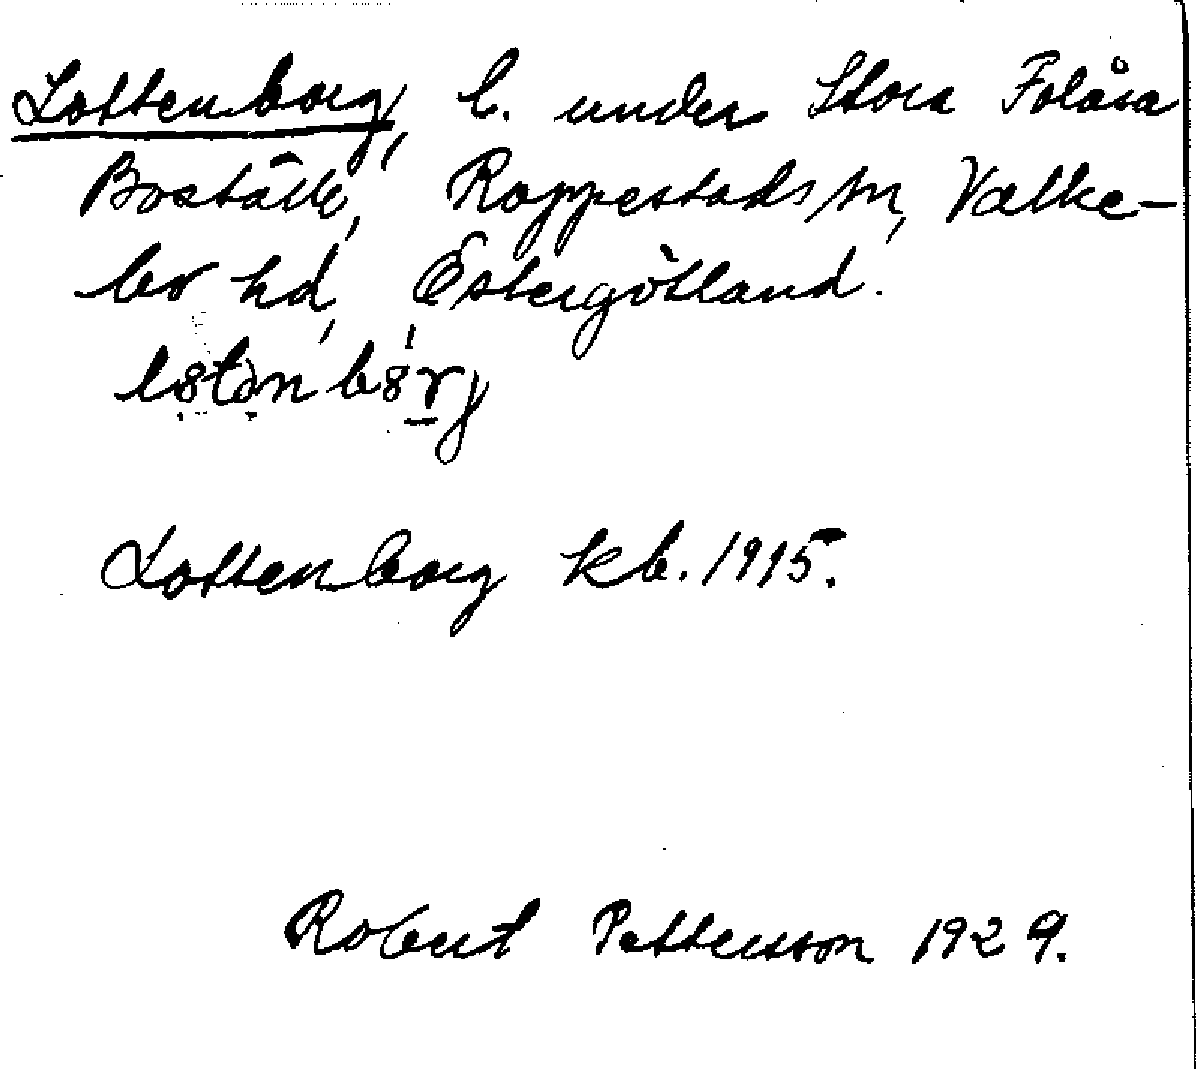 Lottenborg, l. under Stora Folåsa
Boställe, Rappestads sn, Valke-
bo hd, Östergötland.
Lottenborg kb. 1915.
Robert Pettersson 1929.